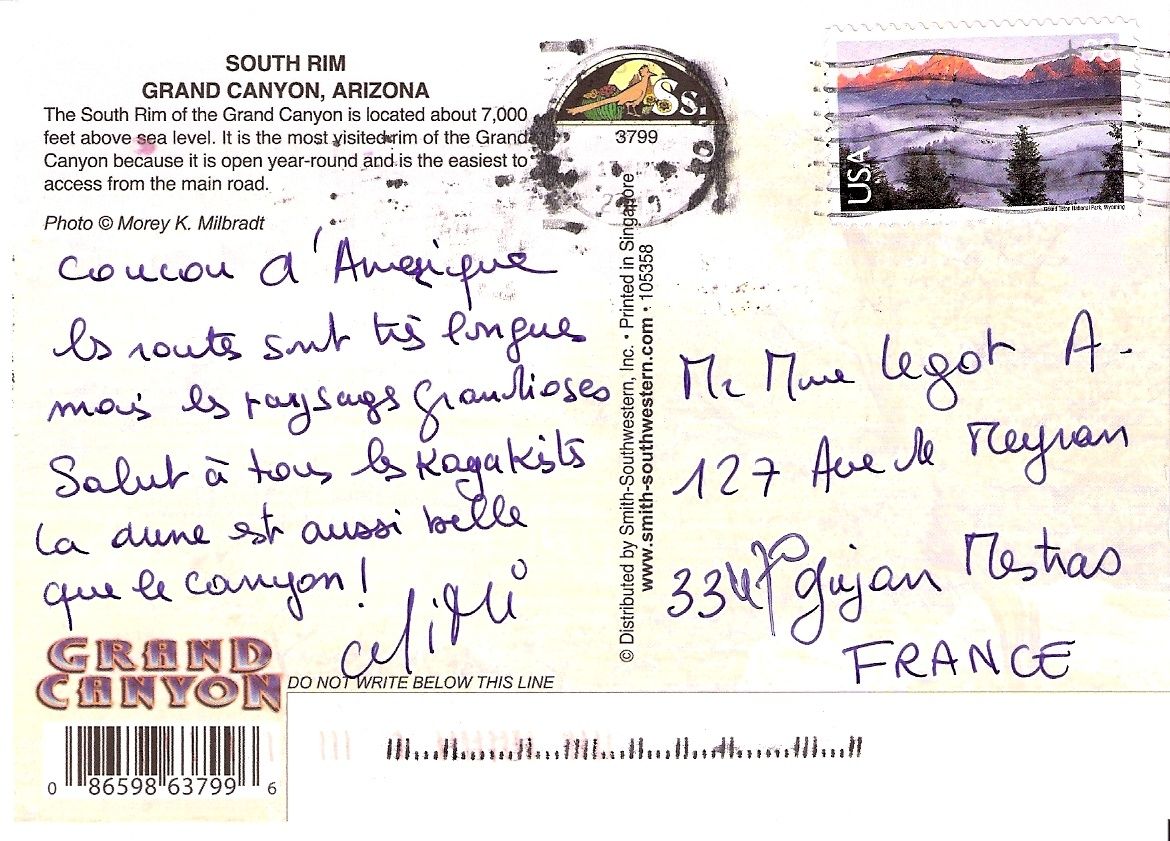 SOUTH RIM
GRAND CANYON, ARIZONA
The South Rim of the Grand Canyon is located about 7,000
feet above sea level. It is the most visited rim of the Grand
Canyon because it is open year-round and is the easiest to
access from the main road.
Photo © Morey K. Milbradt
Coucou d'Amérique
les routes sont très longues
mais les paysages grandioses
Salut à tous les Kayakistes
La dune est aussi belle
que le canyon!
GRAND
CANYON
DO NOT WRITE BELOW THIS LINE
0 86598 63799 6
Ss.
3799
© Distributed by Smith-Southwestern, Inc. • Printed in Singapore
www.smith-southwestern.com • 105358
USA
Grand Teton National Park, Wyoming
Mr Mme Legot A.
127 Ave de Meyran
33470 Gujan Mestras
FRANCE